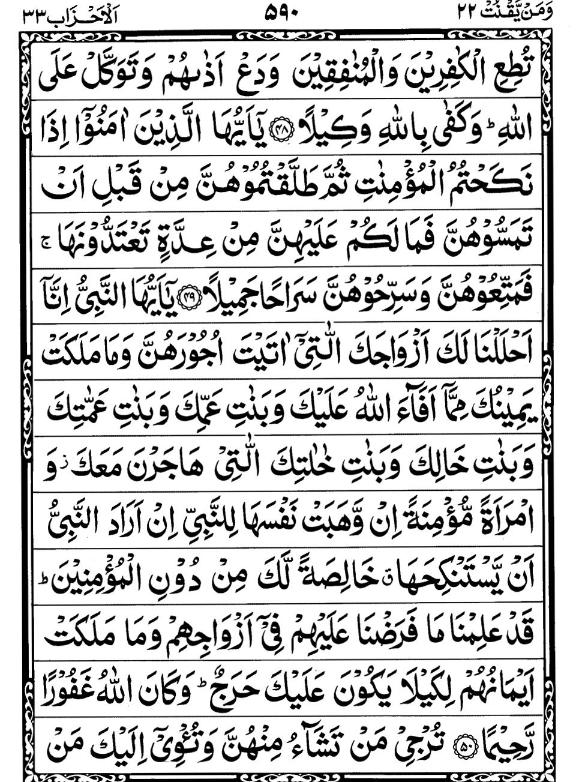 وَمَنْ يَّقْنُتْ ٢٢ ۵۹۰ اَلْاَحْزَاب ٣٣
تُطِعِ الْكٰفِرِيْنَ وَالْمُنٰفِقِيْنَ وَدَعْ اَذٰىهُمْ وَتَوَكَّلْ عَلَى
اللّٰهِ ؕ وَكَفٰى بِاللّٰهِ وَكِيْلًا ﴿۴۸﴾ يٰۤاَيُّهَا الَّذِيْنَ اٰمَنُوْۤا اِذَا
نَكَحْتُمُ الْمُؤْمِنٰتِ ثُمَّ طَلَّقْتُمُوْهُنَّ مِنْ قَبْلِ اَنْ
تَمَسُّوْهُنَّ فَمَا لَكُمْ عَلَيْهِنَّ مِنْ عِدَّةٍ تَعْتَدُّوْنَهَا ۚ
فَمَتِّعُوْهُنَّ وَسَرِّحُوْهُنَّ سَرَاحًا جَمِيْلًا ﴿۴۹﴾ يٰۤاَيُّهَا النَّبِىُّ اِنَّاۤ
اَحْلَلْنَا لَكَ اَزْوَاجَكَ الّٰتِىْۤ اٰتَيْتَ اُجُوْرَهُنَّ وَمَا مَلَكَتْ
يَمِيْنُكَ مِمَّاۤ اَفَآءَ اللّٰهُ عَلَيْكَ وَبَنٰتِ عَمِّكَ وَبَنٰتِ عَمّٰتِكَ
وَبَنٰتِ خَالِكَ وَبَنٰتِ خٰلٰتِكَ الّٰتِىْ هَاجَرْنَ مَعَكَ ز وَ
امْرَاَةً مُّؤْمِنَةً اِنْ وَّهَبَتْ نَفْسَهَا لِلنَّبِىِّ اِنْ اَرَادَ النَّبِىُّ
اَنْ يَّسْتَنْكِحَهَا ق خَالِصَةً لَّكَ مِنْ دُوْنِ الْمُؤْمِنِيْنَ ؕ
قَدْ عَلِمْنَا مَا فَرَضْنَا عَلَيْهِمْ فِىْۤ اَزْوَاجِهِمْ وَمَا مَلَكَتْ
اَيْمَانُهُمْ لِكَيْلَا يَكُوْنَ عَلَيْكَ حَرَجٌ ؕ وَكَانَ اللّٰهُ غَفُوْرًا
رَّحِيْمًا ﴿۵۰﴾ تُرْجِىْ مَنْ تَشَآءُ مِنْهُنَّ وَتُـْٔوِىْۤ اِلَيْكَ مَنْ